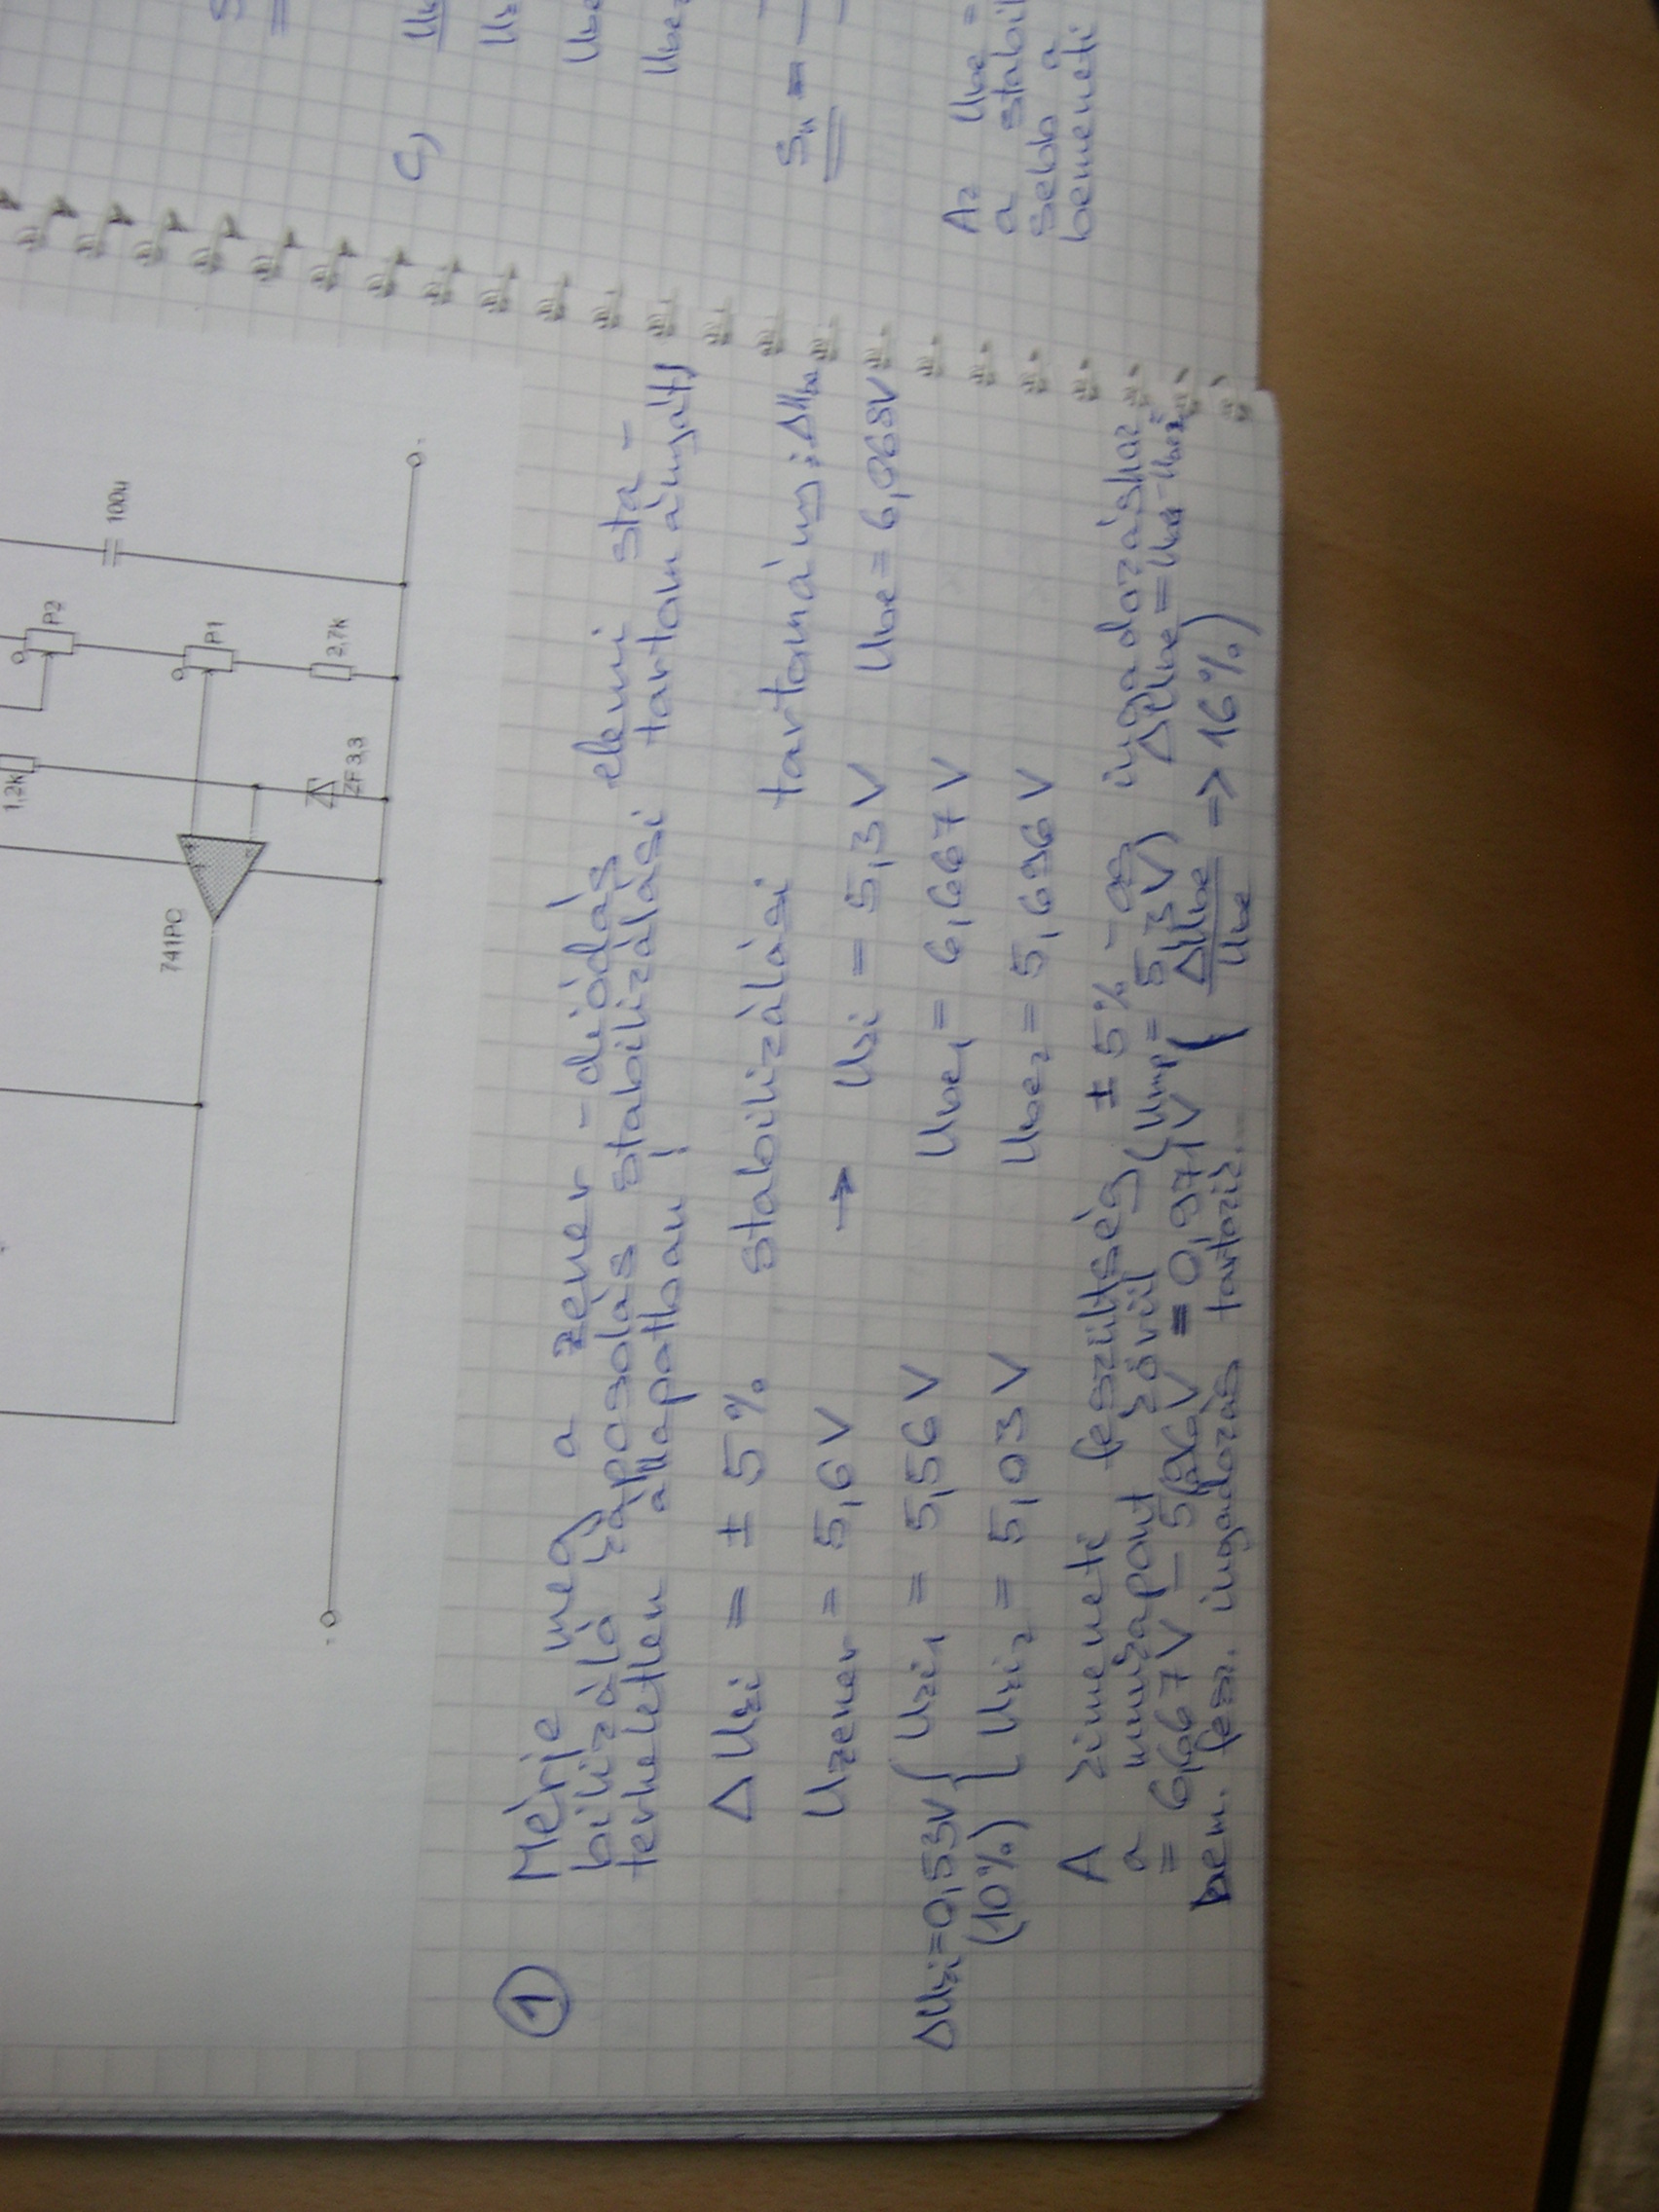 100u
P2
P1
2,7k
1,2k
ZF 3,3
741PC
① Mérje meg a zener-diódás elemi sta-
bilizáló kapcsolás stabilizálási tartományát
terheletlen állapotban!
ΔUki = ± 5% stabilizálási tartomány: ΔUbe
Uzener = 5,6V → Uki = 5,3V Ube = 6,068V
ΔUki=0,53V { Uki1 = 5,56V Ube1 = 6,667V
(10%) { Uki2 = 5,03V Ube2 = 5,696V
A kimeneti feszültség ± 5%-os ingadozáshoz
a munkapont körül (Ump = 5,3V) ΔUbe = Ube1-Ube2 =
= 6,667V - 5,696V = 0,971V ( ΔUbe/Ube -> 16%)
bem. fesz. ingadozás tartozik.
c)
Su =
Az Ube =
a stabil
sebb a
bemeneti